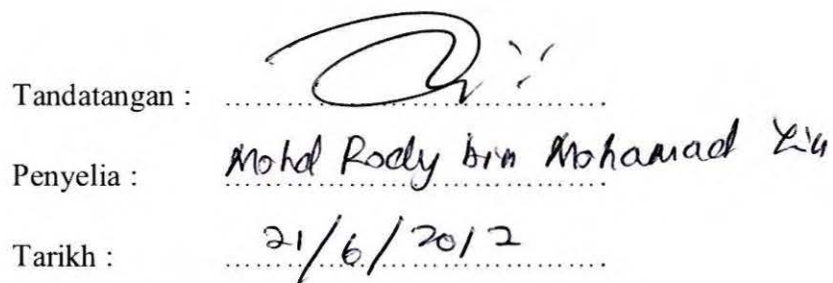 Tandatangan :
Penyelia : Mohd Rody bin Mohamad Zin
Tarikh : 21/6/2012